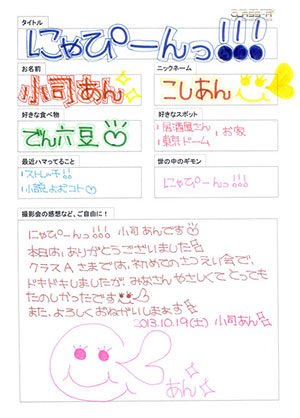 CLASS-A
タイトル
にゃぴーんっ!!!
お名前
ニックネーム
小司あん
こしあん
好きな食べ物
好きなスポット
でん六豆
居酒屋さん
お家
東京ドーム
最近ハマってること
世の中のギモン
ストレッチ!!
小説よむコト
にゃぴーんっ!!
撮影会の感想など、ご自由に!
にゃぴーんっ!!! 小司あんです
本日は、ありがとうございました
クラスAさまでは、初めてのさつえい会で、
ドキドキしましたが、みなさんやさしくて とっても
たのしかったです
また、よろしくおねがいしまぁす
2013.10.19(土) 小司あん
あん